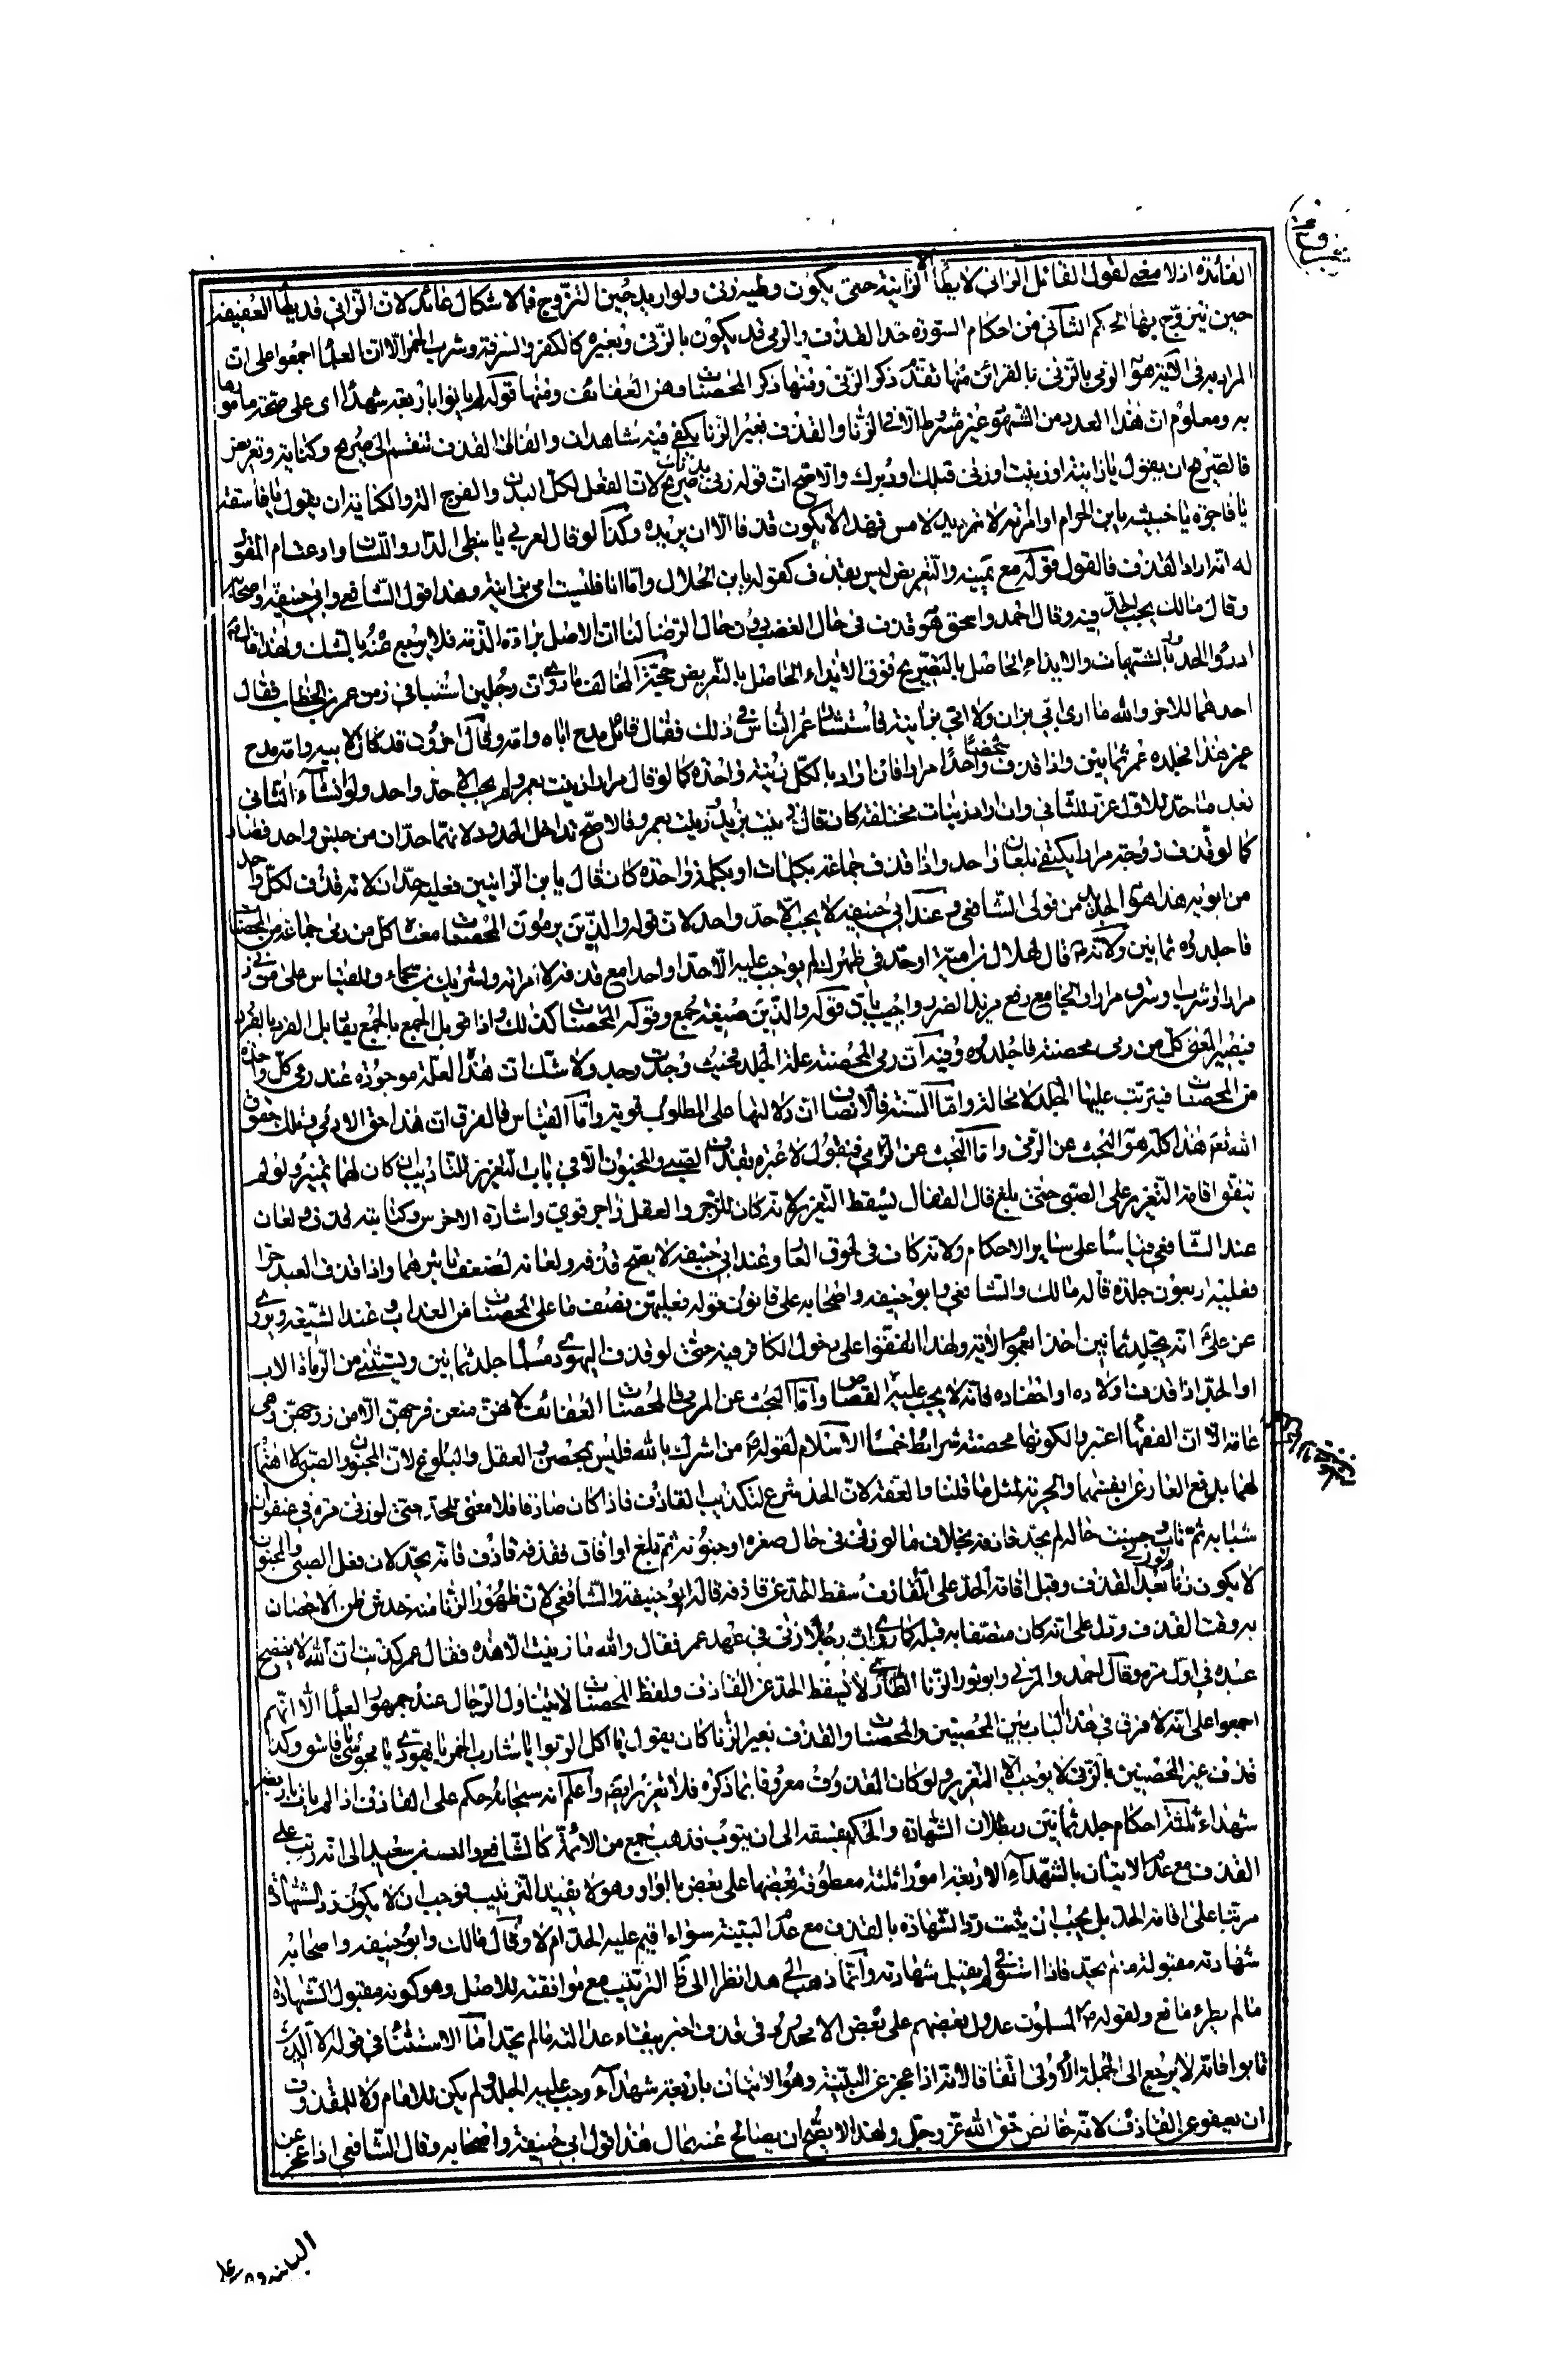 الفائدة اذ لا معنى لقول القائل الزانى لا يطأ الا الزانية حتى يكون وطيه زنى ولو اريد حين التزوج فالاشكال عائد لان الزانى قد يطأ العفيفة
حين يتزوج بها الحكم الثانى من احكام السورة حد القذف والرمى قد يكون بالزنى وبغيره كالكفر والسرقة وشرب الخمر الا ان العلماء اجمعوا على ان
المراد به فى الآية هو الرمى بالزنى بالقرائن منها تقدم ذكر الزنى ومنها ذكر المحصنات وهن العفائف ومنها قوله لم ياتوا باربعة شهداء اى على صحة ما رموها
به ومعلوم ان هذا العدد من الشهود غير مشروط الا فى الزنا والقذف بغير الزنا يكفى فيه شاهدان والفاظ القذف تنقسم الى صريح وكناية وتعريض
فالصريح ان يقول يا زانية او زنيت او زنى قبلك او دبرك والاصح ان قوله زنى بدنك صريح لان الفعل لكل البدن والفرج آلة والكناية ان يقول يا فاسقة
يا فاجرة يا خبيثة يا بن الحرام او امرأته لا ترد يد لامس فهذا لا يكون قذفا الا ان يريده وكذا لو قال لعربى يا نبطى الدار واللسان وادعت ام المقول
له انه اراد القذف فالقول قوله مع يمينه والتعريض ليس بقذف كقوله يا بن الحلال واما انا فليست امى بزانية وهذا قول الشافعى وابى حنيفة واصحابه
وقال مالك يجب الحد فيه وقال احمد واسحق هو قذف فى حال الغضب دون حال الرضا لنا ان الاصل براءة الذمة فلا يرجع عنه بالشك ولهذا قال
ادرؤا الحدود بالشبهات والايذاء الحاصل بالتصريح فوق الايذاء الحاصل بالتعريض حجة المخالف ما روى ان رجلين استبا فى زمن عمر بن الخطاب فقال
احدهما للاخر والله ما ارى ابى بزان ولا امى بزانية فاستشار عمر الناس فى ذلك فقال قائل مدح اباه وامه وقال اخرون قد كان لابيه وامه مدح
غير هذا فجلده عمر ثمانين واذا قذف شخصا واحدا مرارا فان اراد بالكل زنية واحدة كما لو قال مرارا زنيت بعمرو لم يجب الا حد واحد ولو انشاء الثانى
بعد ما حد للاول عزر للثانى وان اراد زنيات مختلفة كان قال زنيت بزيد وزنيت بعمرو فالاصح تداخل الحدود لانهما حدان من جنس واحد فصار
كما لو قذف زوجته مرارا يكتفى بلعان واحد واذا قذف جماعة بكلمات او بكلمة واحدة كان قال يا بن الزانيين فعليه حدان لانه قذف لكل واحد
من ابويه هذا هو الجديد من قولى الشافعى وعند ابى حنيفة لا يجب الا حد واحد لان قوله والذين يرمون المحصنات معناه كل من رمى جماعة من المحصنات
فاجلدوه ثمانين ولانه قال لهلال بن امية او حد فى ظهرك لم يوجب عليه الا حدا واحدا مع قذفه لامرأته ولشريك بن سحماء وللقياس على من زنى
مرارا او شرب او سرق مرارا والجامع رفع مزيد الضرر واجيب بان قوله والذين صيغة جمع وقوله المحصنات كذلك واذا قوبل الجمع بالجمع يقابل الفرد بالفرد
فيصير المعنى كل من رمى محصنة فاجلدوه وفيه ان رمى المحصنة علة الجلد فحيث وجدت وجد ولا شك ان هذه العلة موجودة عند رمى كل واحدة
من المحصنات فيترتب عليها الجلد لا محالة واما السنة فالانصاف ان دلالتها على المطلوب قوية واما القياس فالفرق ان هذا حق الادمى وتلك حقوق
الله نعم هذا كله هو البحث عن الرمى واما البحث عن الرامى فنقول لا عبرة بقذف الصبى والمجنون الا فى باب التعزير للتاديب ان كان لهما تمييز ولو لم
تتفق اقامة التعزير على الصبى حتى بلغ قال القفال يسقط التعزير لانه كان للزجر والعقل زاجر قوى واشارة الاخرس وكنايته قذف ولعان
عند الشافعى قياسا على ساير الاحكام ولانه كاف فى لحوق العار وعند ابى حنيفة لا يصح قذفه ولعانه لضعف تاثيرهما واذا قذف العبد حرا
فعليه اربعون جلدة قاله مالك والشافعى وابو حنيفة واصحابه على قانون قوله فعليهن نصف ما على المحصنات من العذاب وعند الشيعة ويروى
عن على انه يجلد ثمانين اخذا بعموم الآية ولهذا اتفقوا على دخول الكافر فيه حتى لو قذف اليهودى مسلما جلد ثمانين ويستثنى من الرماة الاب
او الجد اذا قذف اولاده او احفاده فانه لا يجب عليه القصاص واما البحث عن المرمى فالمحصنات العفائف لانهن منعن فرجهن الا من زوجهن وهى
عامة الا ان الفقهاء اعتبروا لكونها محصنة شرايط خمسا الاسلام لقوله من اشرك بالله فليس بمحصن والعقل والبلوغ لان المجنون والصبى لا اهتمام
لهما بدفع العار عن انفسهما والحرية لمثل ما قلنا والعفة لان الحد شرع لتكذيب القاذف فاذا كان صادقا فلا معنى للحد حتى لو زنى مرة فى عنفوان
شبابه ثم تاب وحسنت حاله لم يحد قاذفه بخلاف ما لو زنى فى حال صغره او جنونه ثم بلغ او افاق فقذفه قاذف فانه يحد لان فعل الصبى والمجنون
لا يكون زنا ولو زنى بعد القذف وقبل اقامة الحد على القاذف سقط الحد عن قاذفه قاله ابو حنيفة والشافعى لان ظهور الزنا منه خدش ظن الاحصان
به وقت القذف ودل على انه كان متصفا به قبله كما روى ان رجلا زنى فى عهد عمر فقال والله ما زنيت الا هذه فقال عمر كذبت ان الله لا يفضح
عبده فى اول مرة وقال احمد والمزنى وابو ثور الزنا الطارى لا يسقط الحد عن القاذف ولفظ المحصنات لا يتناول الرجال عند جمهور العلماء الا انهم
اجمعوا على انه لا فرق فى هذا الباب بين المحصنين والمحصنات والقذف بغير الزنا كان يقول يا آكل الربوا يا شارب الخمر يا يهودى يا مجوسى يا فاسق وكذا
قذف غير المحصنين بالزنى لا يوجب الا التعزير ولو كان المقذوف معروفا بما ذكره فلا تعزير ايضا واعلم انه سبحانه حكم على القاذف اذا لم يات باربعة
شهداء ثلثة احكام جلد ثمانين وبطلان الشهادة والحكم بفسقه الى ان يتوب فذهب جمع من الائمة كالشافعى والليث بن سعيد الى انه رتب على
القذف مع عدم الاتيان بالشهداء الاربعة امورا ثلثة معطوفة بعضها على بعض بالواو وهو لا يفيد الترتيب فوجب ان لا يكون رد الشهادة
مرتبا على اقامة الحد بل يجب ان يثبت رد الشهادة بالقذف مع عدم البينة سواء اقيم عليه الحد ام لا وقال مالك وابو حنيفة واصحابه
شهادته مقبولة ما لم يحد فاذا استوفى لم يقبل شهادته وانما ذهب الى هذا نظرا الى ظاهر الترتيب مع موافقته للاصل وهو كونه مقبول الشهادة
ما لم يطرء مانع ولقوله المسلمون عدول بعضهم على بعض الا محدود فى قذف اخبر ببقاء عدالته ما لم يحد اما الاستثناء فى قوله الا الذين
تابوا فانه لا يرجع الى الجملة الاولى اتفاقا لانه اذا عجز عن البينة وهو الاتيان باربعة شهداء وجب عليه الجلد ولم يكن للامام ولا للمقذوف
ان يعفو عن القاذف لانه خالص حق الله عز وجل ولهذا لا يصح ان يصالح عنه بمال هذا قول ابى حنيفة واصحابه وقال الشافعى اذا عجز عن
البينة